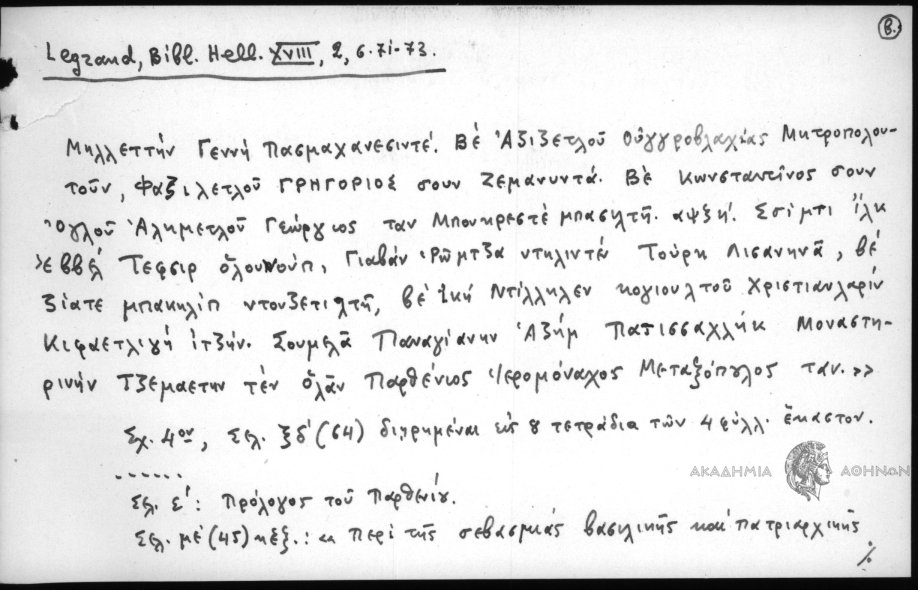 β.)
Legrand, Bibl. Hell. XVIII, 2, σ. 71-73.
Μηλλεττὴν Γεννὴ Πασμαχανεσιντέ. Βὲ Ἀζιζετλοῦ Οὐγγροβλαχίας Μητροπολου-
τοῦν, φαζιλετλοῦ ΓΡΗΓΟΡΙΟΣ σουν Ζεμανυντά. Βὲ Κωνσταντῖνος σουν
Ὀγλοῦ Ἀλημετλοῦ Γεώργιος ταν Μπουκρεστὲ μπασιλτῆ. αψξή. Ἐσί μτι ἴλκ
>εββελ Τεφσιρ ὀλουνούπ, Γιαβάν Ῥωμτζα ντηλιντέν Τούρκ Λισανηνᾶ, βὲ
ζίατε μπακηλίπ ντουζετιλτῆ, βὲ ἰκή Ντίλληλεν κογιουλτοῦ Χριστιανλαρίν
Κιφαετλιγή ἰτζήν. Σουμελᾶ Παναγίανην Ἀζήμ Πατισσαχλήκ Μοναστη-
ρινήν Τζεμαετην τέν ὀλάν Παρθένιος Ἱερομόναχος Μεταξόπουλος ταν.»
Σχ. 4ον, Σελ. ξδ' (64) διῃρημέναι εἰς 8 τετράδια τῶν 4 φύλλ. ἕκαστον.
......
Σελ. ε': Πρόλογος τοῦ Παρθενίου.
Σελ. με' (45) κἑξ.: «Περὶ τῆς σεβασμίας βασιλικῆς καὶ πατριαρχικῆς
./.
ΑΚΑΔΗΜΙΑ ΑΘΗΝΩΝ